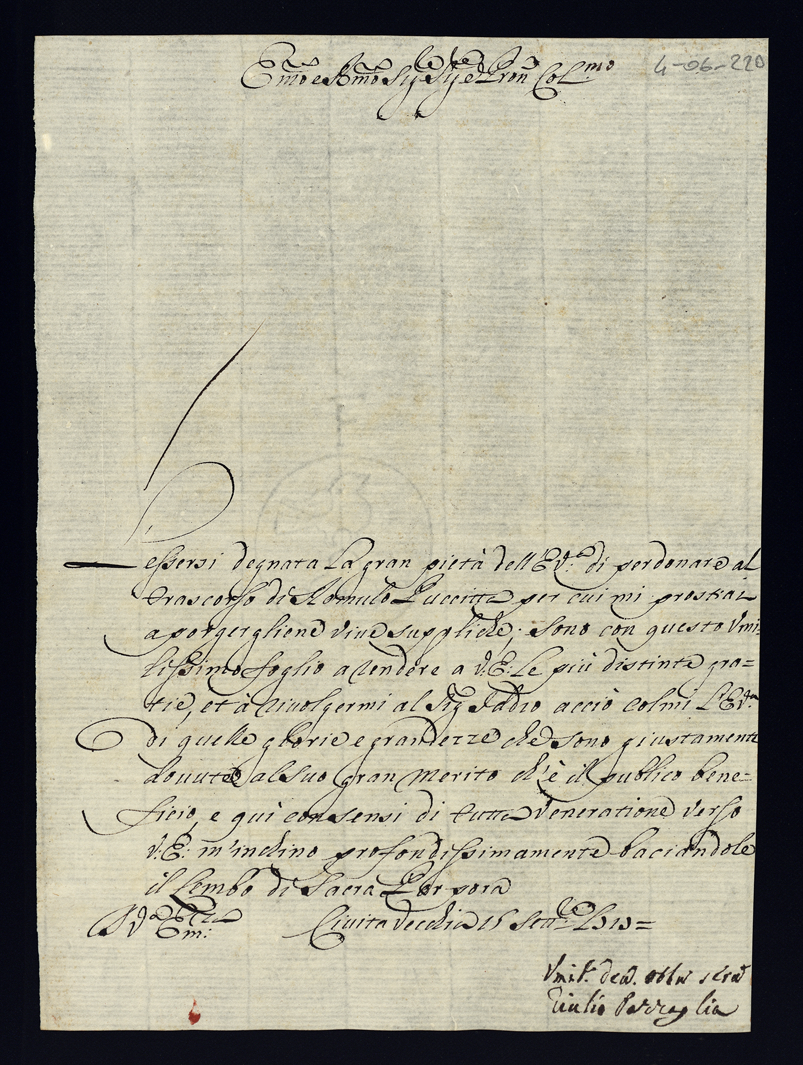 4-06-220
Emo e Rmo Sig Sig e Pron Colmo
essersi degnata la gran pietà dell'E.V.ra di perdonare al
trascorso di Romulo Puccitta per cui mi prostrai
a porgerglione vive suppliche; sono con questo Vmi-
lissimo foglio a rendere a V.E: le più distinte gra=
tie, et à rivolgermi al Sig Iddio acciò colmi L'E.V.ra
di quelle glorie e grandezze che sono giustamente
dovute al suo gran merito ch'è il publico bene=
ficio, e quì con sensi di tutta Veneratione verso
V.E: m'inchino profondissimamente baciandole
il Lembo di Sacra Porpora
Di V.ra Em:
Civita Vecchia 15 Sett.re
Vmil. dev. obb.
Giulio